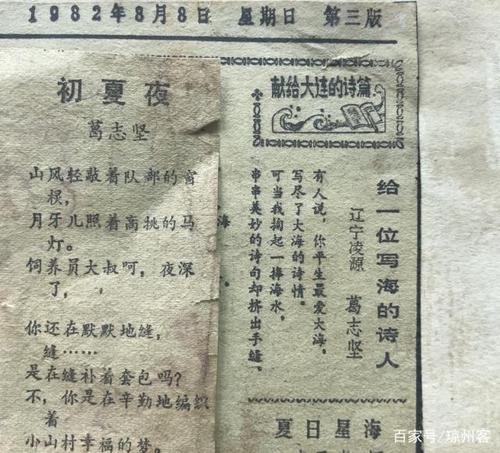 1982年8月8日 星期日 第三版
初夏夜
葛志坚
山风轻敲着队部的窗
棂，
月牙儿照着高挑的马
灯。
饲养员大叔呵，夜深
了，
你还在默默地缝，
缝……
是在缝补着套包吗？
不，你是在辛勤地编织
着
小山村幸福的梦。
海
献给大连的诗篇
给一位写海的诗人
辽宁凌源 葛志坚
有人说，你平生最爱大海，
写尽了大海的诗情。
可当我掬起一捧海水，
串串美妙的诗句却挤出手缝。
夏日星海
百家号/琼州客